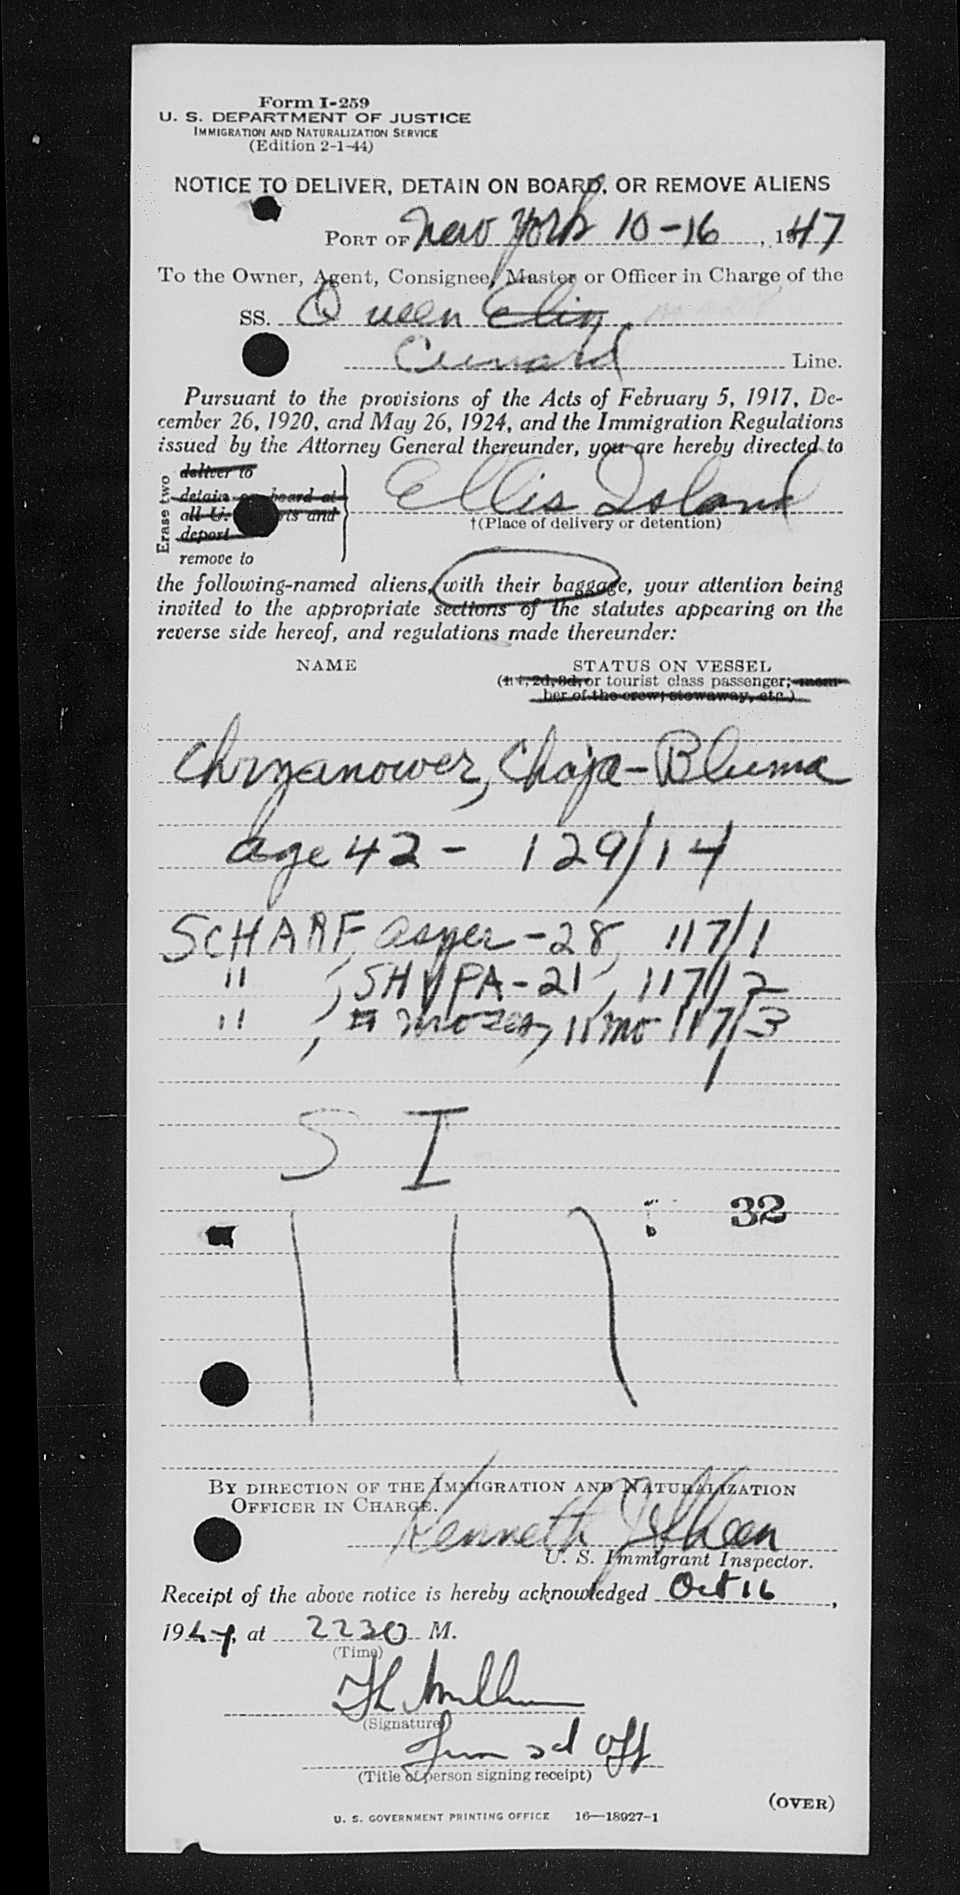 Form I-259
U. S. DEPARTMENT OF JUSTICE
IMMIGRATION AND NATURALIZATION SERVICE
(Edition 2-1-44)
NOTICE TO DELIVER, DETAIN ON BOARD, OR REMOVE ALIENS
PORT OF New York 10-16, 1947
To the Owner, Agent, Consignee, Master or Officer in Charge of the
SS. Queen Eliz
Cunard Line.
Pursuant to the provisions of the Acts of February 5, 1917, De-
cember 26, 1920, and May 26, 1924, and the Immigration Regulations
issued by the Attorney General thereunder, you are hereby directed to
Erase two
deliver to
detain on board at
all U. ts and
deport
remove to
Ellis Island
†(Place of delivery or detention)
the following-named aliens, with their baggage, your attention being
invited to the appropriate sections of the statutes appearing on the
reverse side hereof, and regulations made thereunder:
NAME STATUS ON VESSEL
(1st, 2d, 3d, or tourist class passenger; mem-
ber of the crew; stowaway, etc.)
Chrzanower, Chaja-Bluma
age 42 - 129/14
SCHARF, -28, 117/1
" , SHYPA-21, 117/2
" , Mozes, 11 mo 117/3
S I
32
BY DIRECTION OF THE IMMIGRATION AND NATURALIZATION
OFFICER IN CHARGE.
Kenneth
U. S. Immigrant Inspector.
Receipt of the above notice is hereby acknowledged Oct 16,
1947, at 2230 M.
(Time)
(Signature)
Off
(Title of person signing receipt)
(OVER)
U. S. GOVERNMENT PRINTING OFFICE 16—18927-1